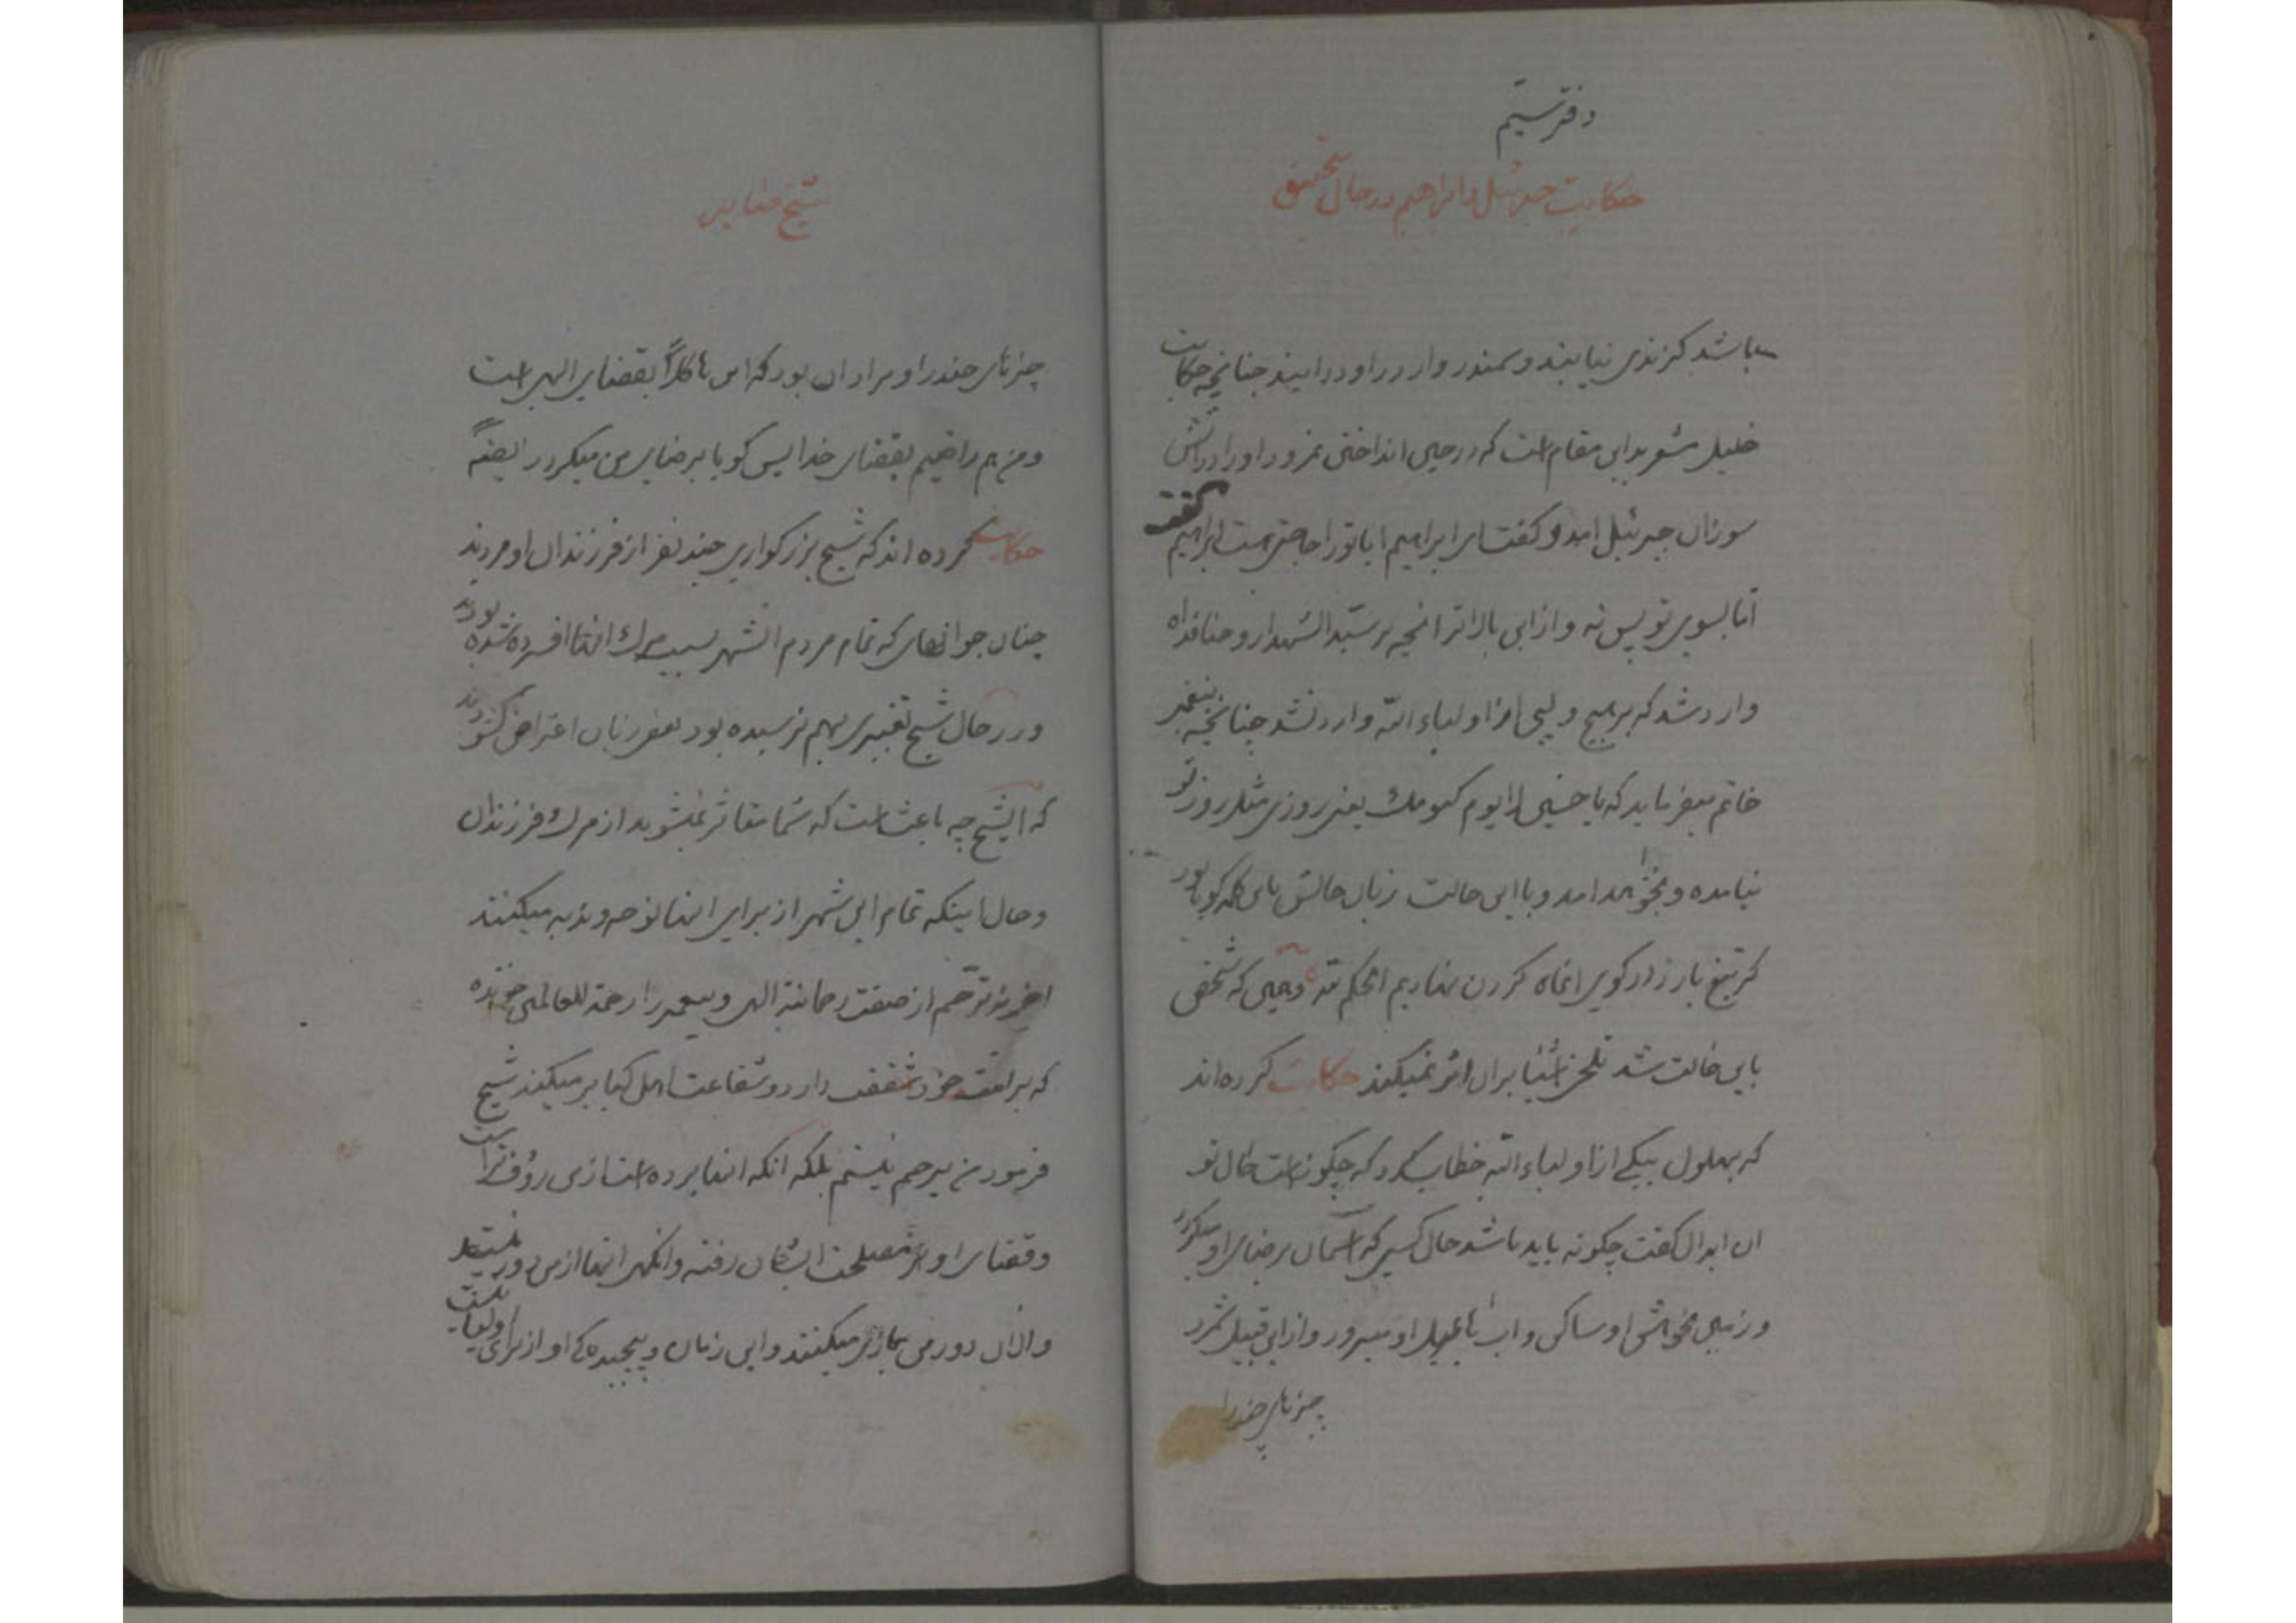 دفتر سیّم
حکایت جبرئیل و ابراهیم در حال
باشد کزندی نیابند و سمندر وار در او در ایند چنانچه حکایت
خلیل شعر بداین مقام است که در حین انداختن نمرود او را در اتش
سوزان جبرئیل امد و کفت ای ابراهیم ایا تو را حاجتی هست ابراهیم کفت
امّا بسوی تو پس نه و از این بالاتر انچه بر سیّد الشهدا روحنا فداه
وارد شد که بر هیچ ولیی از اولیاء الله وارد نشد چنانچه پیغمبر
خاتم میفرماید که یا حسین لا یوم کیومك یعنی روزی مثل روز تو
نیامده و نخواهد امد و با این حالت زبان حالش باین کلمه کویا بود
کر تیغ بارد در کوی انماه کردن نهادیم الحکم لله و حین که شخص
باین حالت شد تلخی اشیا بران اثر نمیکند حکایت کرده اند
که بهلول بیکی از اولیاء الله خطاب کرد که چکونه است حال تو
ان ابدال کفت چکونه باید باشد حال کسی که اسمان برضای او میکردد
و زمین بخواهش او ساکن و اب با میل او میرود و از این قبیل شمرد
چیزهای چند را
شیخ
چیزهای چند را و مراد ان بود که این ها کلاً بقضای الهی است
و من هم راضیم بقضای خدا پس کویا برضای من میکردد ایضاً
حکایت کرده اند که شیخ بزرکواری چند نفر از فرزندان او مردند
چنان جوانهای که تمام مردم انشهر بسبب مرك انها افسرده شده بودند
و در حال شیخ تغییری بهم نرسیده بود بعض زبان اعتراض کشودند
که ایشیخ چه باعث است که شما متاثر نمیشوید از مرك فرزندان
و حال اینکه تمام این شهر از برای انها نوحه و ندبه میکنند
اخر نه ترحّم از صفت رحمانیة الهی و پیغمبر را رحمة للعالمین خوانده
که بر امّت خود شفقت دارد و شفاعت اهل کبایر میکند شیخ
فرمود من بیرحم نیستم بلکه انکه انها برده است از من رؤف تر است
و قضای او بر مصلحت ایشان رفته و انکهی انها از من دور نیستند
و الان دور من بازی میکنند و این زمان و پیچیده که او از برای اولیا نیست